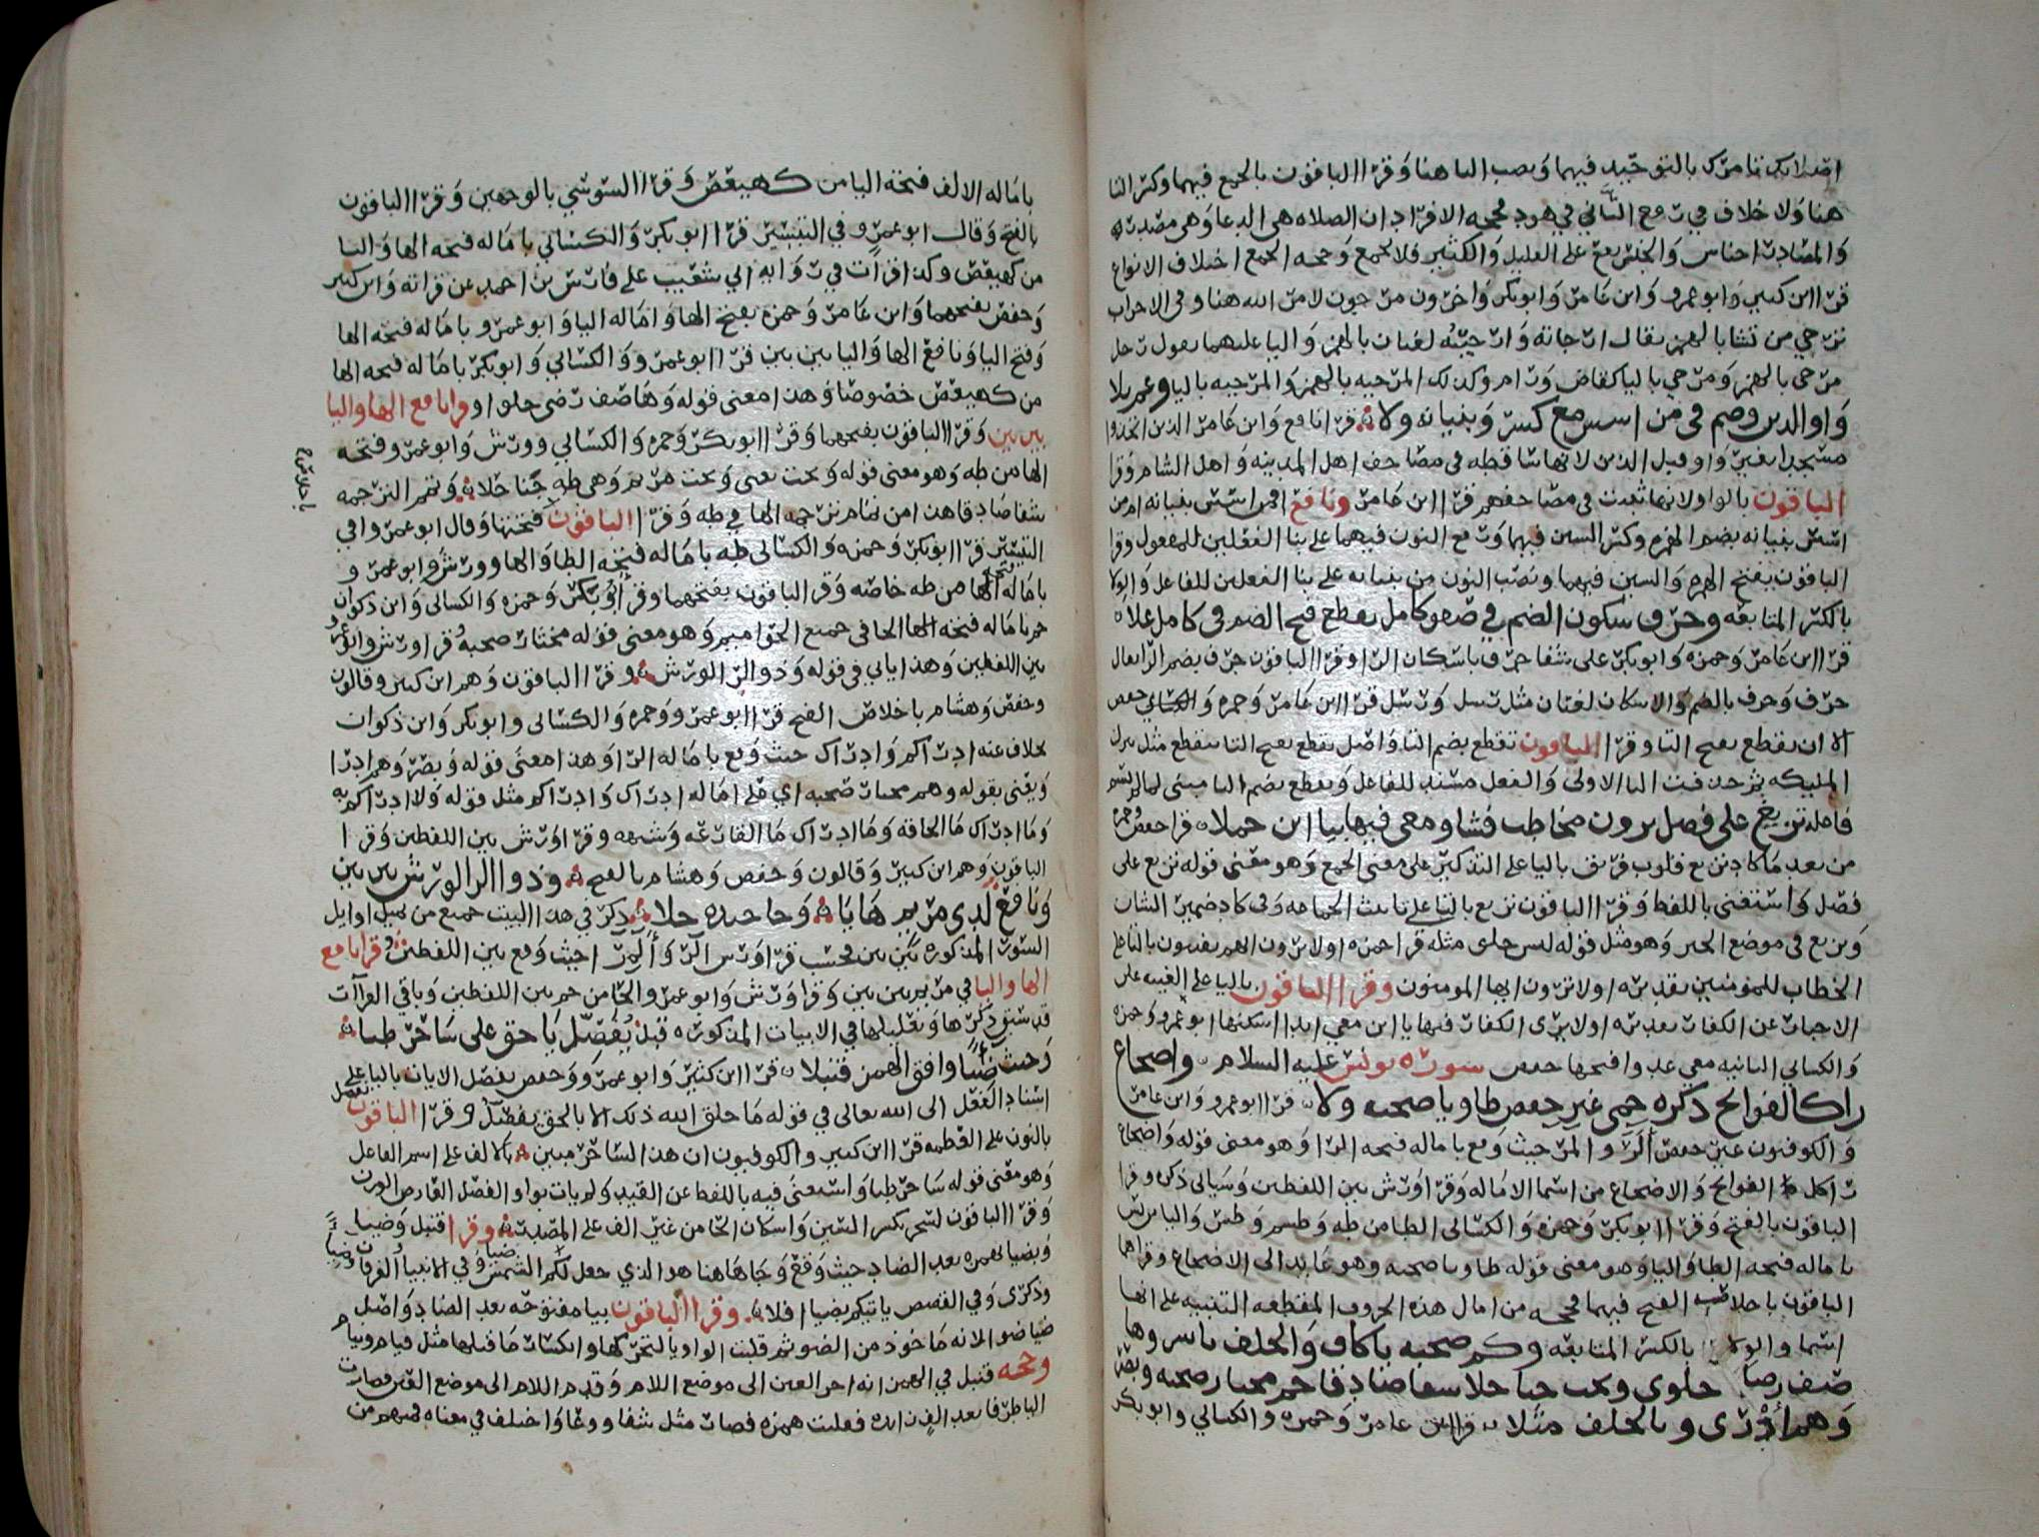 بالتوحيد فيهما ونصب التا هنا وقرا الباقون بالجمع فيهما وكسر التا
هنا ولا خلاف في رفع التاني في هود فحجه الافراد ان الصلاه هي الدعا وهي مصدر
والمصادر اجناس والجنس يقع على القليل والكثير فلا يجمع وحجه الجمع اختلاف الانواع
قرا ابن كثير وابو عمرو وابن عامر وابو بكر واخرون مرجون لامر الله هنا وفي الاحزاب
ترجي من تشا بالهمز يقال ارجاته وارجيته لغتان بالهمز واليا عليهما يقول رجل
مرجي بالهمز ومرجي باليا كقاض ورام وكذلك المرجيه بالهمز والمرجيه باليا وعم بلا
واو الذين وضم في من اسس مع كسر وبنيانه ولا قرا نافع وابن عامر الذين اتخذوا
مسجدا بغير واو قبل الذين لانها ساقطه في مصاحف اهل المدينه واهل الشام وقرا
الباقون بالواو لانها ثبتت في مصاحفهم قرا ابن عامر ونافع افمن اسس بنيانه ام من
اسس بنيانه بضم الهمزه وكسر السين فيهما ورفع النون فيهما على بنا الفعلين للمفعول وقرا
الباقون بفتح الهمزه والسين فيهما ونصب النون من بنيانه على بنا الفعلين للفاعل والولا
بالكسر المتابعه وجرف سكون الضم في صفو كامل تقطع فتح الضم في كامل علا
قرا ابن عامر وحمزه وابو بكر على شفا جرف باسكان الرا وقرا الباقون جرف بضم الرا يقال
جرف وجرف بالضم والاسكان لغتان مثل رسل ورسل قرا ابن عامر وحمزه وحفص
الا ان تقطع بفتح التا وقرا الباقون تقطع بضم التا واصل تقطع بفتح التا تتقطع مثل تنزل
المليكه ثم حذفت التا الاولى والفعل مسند للفاعل وتقطع بضم التا مبني لما لم يسم
فاعله تزيغ على فصل يرون مخاطب فشا ومعي فيها بيا اين حملا قرا حفص وحمزه
من بعد ما كاد يزيغ قلوب فريق باليا على التذكير على معنى الجمع وهو معنى قوله يزيغ على
فصل واستغنى باللفظ وقرا الباقون تزيغ بالتا على تانيث الجماعه وفي كاد ضمير الشان
وتزيغ في موضع الخبر وهو مثل قوله ليس خلق مثله قرا حمزه اولا ترون انهم يفتنون بالتا على
الخطاب للمومنين تقديره اولا ترون ايها المومنون وقرا الباقون باليا على الغيبه على
الاخبار عن الكفار تقديره اولا يرى الكفار فيها يا ابن معي ابدا اسكنها ابو عمرو وحمزه
والكسائي الثانيه معي عدوا فتحها حفص سورة يونس عليه السلام واضجاع
را كل الفواتح ذكره حمى غير حفص طا ويا صحبه ولا قرا ابو عمرو وابن عامر
والكوفيون غير حفص الر والمر حيث وقع باماله فتحه الرا وهو معنى قوله واضجاع
را كل الفواتح والاضجاع من اسما الاماله وقرا ورش بين اللفظين وسياتي ذكره وقرا
الباقون بالفتح وقرا ابو بكر وحمزه والكسائي الطا من طه وطسم وطس واليا من يس
باماله فتحه الطا واليا وهو معنى قوله طا ويا صحبه وهو عايد الى الاضجاع وقراهما
الباقون باخلاص الفتح فيهما فحجه من امال هذه الحروف المقطعه التنبيه على انها
اسما والولا بالكسر المتابعه وكم صحبه يا كاف والخلف ياسر وها
صف رضا حلوا وتحت جنا حلا شفا صادقا حم مختار صحبه وبصر
وهم ادرى وبالخلف مثلا قرا ابن عامر وحمزه والكسائي وابو بكر
باماله الالف فتحه اليا من كهيعص وقرا السوسي بالوجهين وقرا الباقون
بالفتح وقال ابو عمرو في التيسير قرا ابو بكر والكسائي باماله فتحه الها واليا
من كهيعص وكذا قرات في روايه ابي شعيب على فارس بن احمد عن قراته وابن كثير
وحفص بفتحهما وابن عامر وحمزه بفتح الها واماله اليا وابو عمرو باماله فتحه الها
وفتح اليا ونافع الها واليا بين بين قرا ابو عمرو والكسائي وابو بكر باماله فتحه الها
من كهيعص خصوصا وهذا معنى قوله وها صف رضى حلوا وقرا نافع الها واليا
بين بين وقرا الباقون بفتحهما وقرا ابو بكر وحمزه والكسائي وورش وابو عمرو فتحه
الها من طه وهو معنى قوله وتحت يعني وتحت مريم وهي طه جنا حلا وتمم الترجمه
شفا صادقا هذا من تمام ترجمه الها في طه وقرا الباقون فتحتها وقال ابو عمرو في
التيسير قرا ابو بكر وحمزه والكسائي طه باماله فتحه الطا والها وورش وابو عمرو
باماله الها من طه خاصه وقرا الباقون بفتحهما وقرا ابو بكر وحمزه والكسائي وابن ذكوان
حم باماله فتحه الحا في جميع الحواميم وهو معنى قوله مختار صحبه قرا ورش وابو عمرو
بين اللفظين وهذا ياتي في قوله وذو الرا لورش وقرا الباقون وهم ابن كثير وقالون
وحفص وهشام باخلاص الفتح قرا ابو عمرو وحمزه والكسائي وابو بكر وابن ذكوان
بخلاف عنه ادراكم وادراك حيث وقع باماله الرا وهذا معنى قوله وبصر وهم ادرا
ويعني بقوله وهم مختار صحبه اي على اماله ادراك وادراكم مثل قوله ولا ادراكم به
وما ادراك ما الحاقه وما ادراك ما القارعه وشبهه وقرا ورش بين اللفظين وقرا
الباقون وهم ابن كثير وقالون وحفص وهشام بالفتح وذو الرا لورش بين بين
ونافع لدى مريم هايا وحا جيده حلا ذكر في هذا البيت جميع من يميل اوايل
السور المذكوره بين بين فحسب قرا ورش الر والمر حيث وقع بين اللفظين وقرا نافع
الها واليا في مريم بين بين وقرا ورش وابو عمرو الحا من حم بين اللفظين وباقي القراات
قد سبق ذكرها وتعليلها في الابيات المذكوره قبل يفصل يا حق علا ساحر ظبا
وحيث ضيا وافق الهمز قنبلا قرا ابن كثير وابو عمرو وحفص يفصل الايات باليا على
اسناد الفعل الى الله تعالى في قوله ما خلق الله ذلك الا بالحق يفصل وقرا الباقون نفصل
بالنون على العظمه قرا ابن كثير والكوفيون ان هذا لساحر مبين بالالف على اسم الفاعل
وهو معنى قوله ساحر ظبا واستغنى فيه باللفظ عن القيد ولم يات بواو الفصل
وقرا الباقون لسحر بكسر السين واسكان الحا من غير الف على المصدر وقرا قنبل وضيا
وبضيا بهمزه بعد الضاد حيث وقع وجا هاهنا هو الذي جعل لكم الشمس ضيا وفي الانبيا الفرقان وضيا
وذكرى وفي القصص ياتيكم بضيا افلا وقرا الباقون بيا مفتوحه بعد الضاد واصل
ضيا ضوا لانه ماخوذ من الضو ثم قلبت الواو يا لتحركها وانكسار ما قبلها مثل قيام ونيام
وحجه قنبل في الهمز انه اخر العين الى موضع اللام وقدم اللام الى موضع العين فصارت
اليا طرفا بعد الف زايده فقلبت همزه فصار مثل شفا ووعا واختلف في معناه فمنهم من